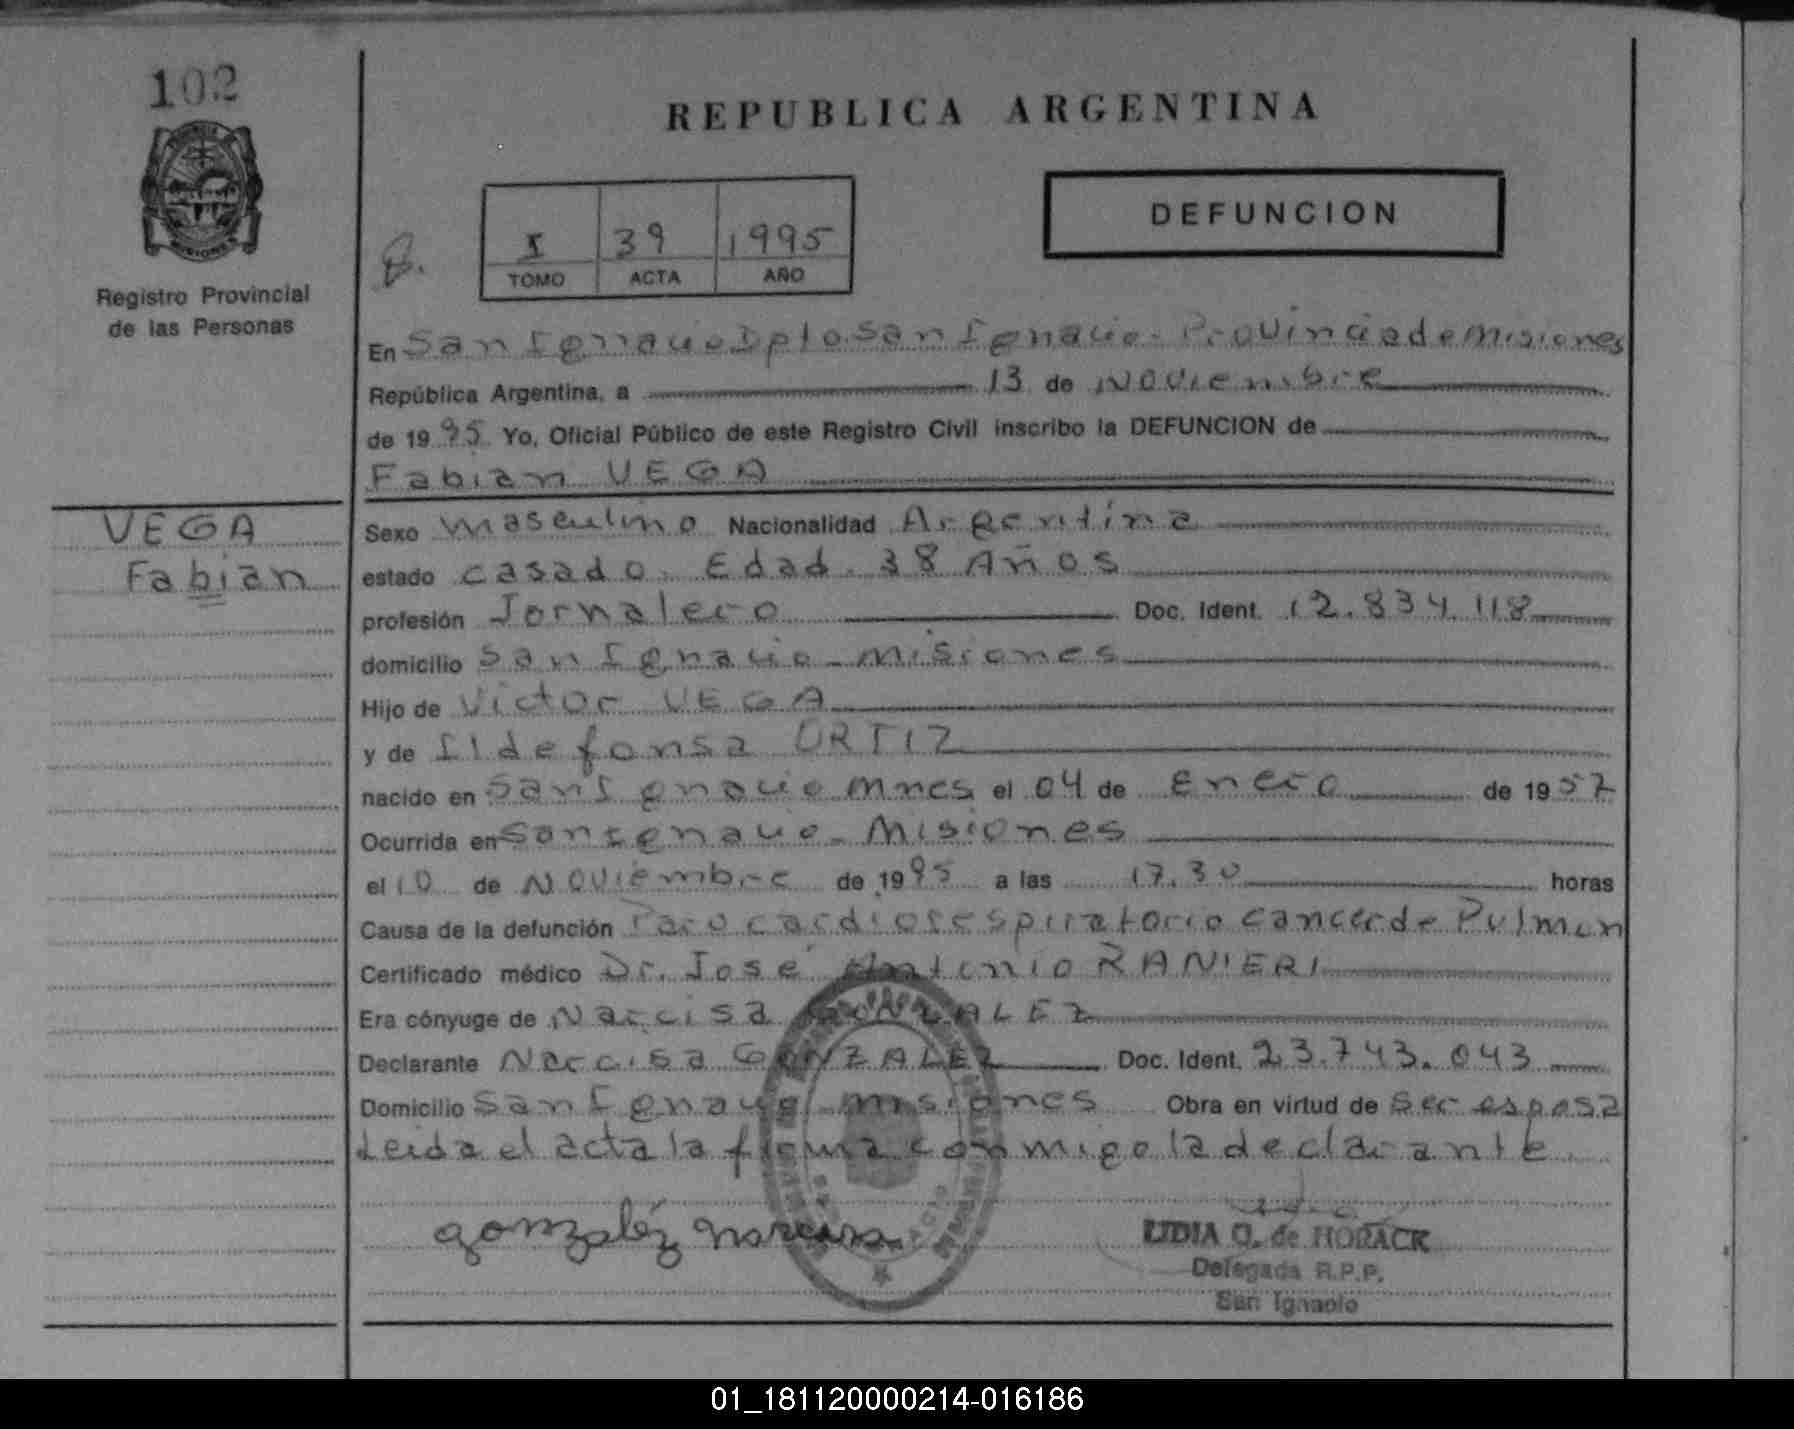 102
REPUBLICA ARGENTINA
DEFUNCION
I 39 1995
TOMO ACTA AÑO
Registro Provincial
de las Personas
En San Ignacio Dpto San Ignacio - Provincia de Misiones
República Argentina, a 13 de Noviembre
de 1995 Yo, Oficial Público de este Registro Civil inscribo la DEFUNCION de
Fabian VEGA
VEGA
Fabian
Sexo masculino Nacionalidad Argentina
estado casado. Edad. 38 Años
profesión Jornalero Doc. Ident. 12.834.118
domicilio San Ignacio - Misiones
Hijo de Victor VEGA
y de Ildefonsa ORTIZ
nacido en San Ignacio Mnes el 04 de Enero de 1957
Ocurrida en San Ignacio - Misiones
el 10 de Noviembre de 1995 a las 17.30 horas
Causa de la defunción Paro cardiorespiratorio cancer de Pulmon
Certificado médico Dr. José Antonio RANIERI
Era cónyuge de Narcisa GONZALEZ
Declarante Narcisa GONZALEZ Doc. Ident. 23.743.043
Domicilio San Ignacio - Misiones Obra en virtud de ser esposa
Leida el acta la firma conmigo la declarante
gonzaléz narcisa
LIDIA O. de HORACK
Delegada R.P.P.
San Ignacio
01_181120000214-016186